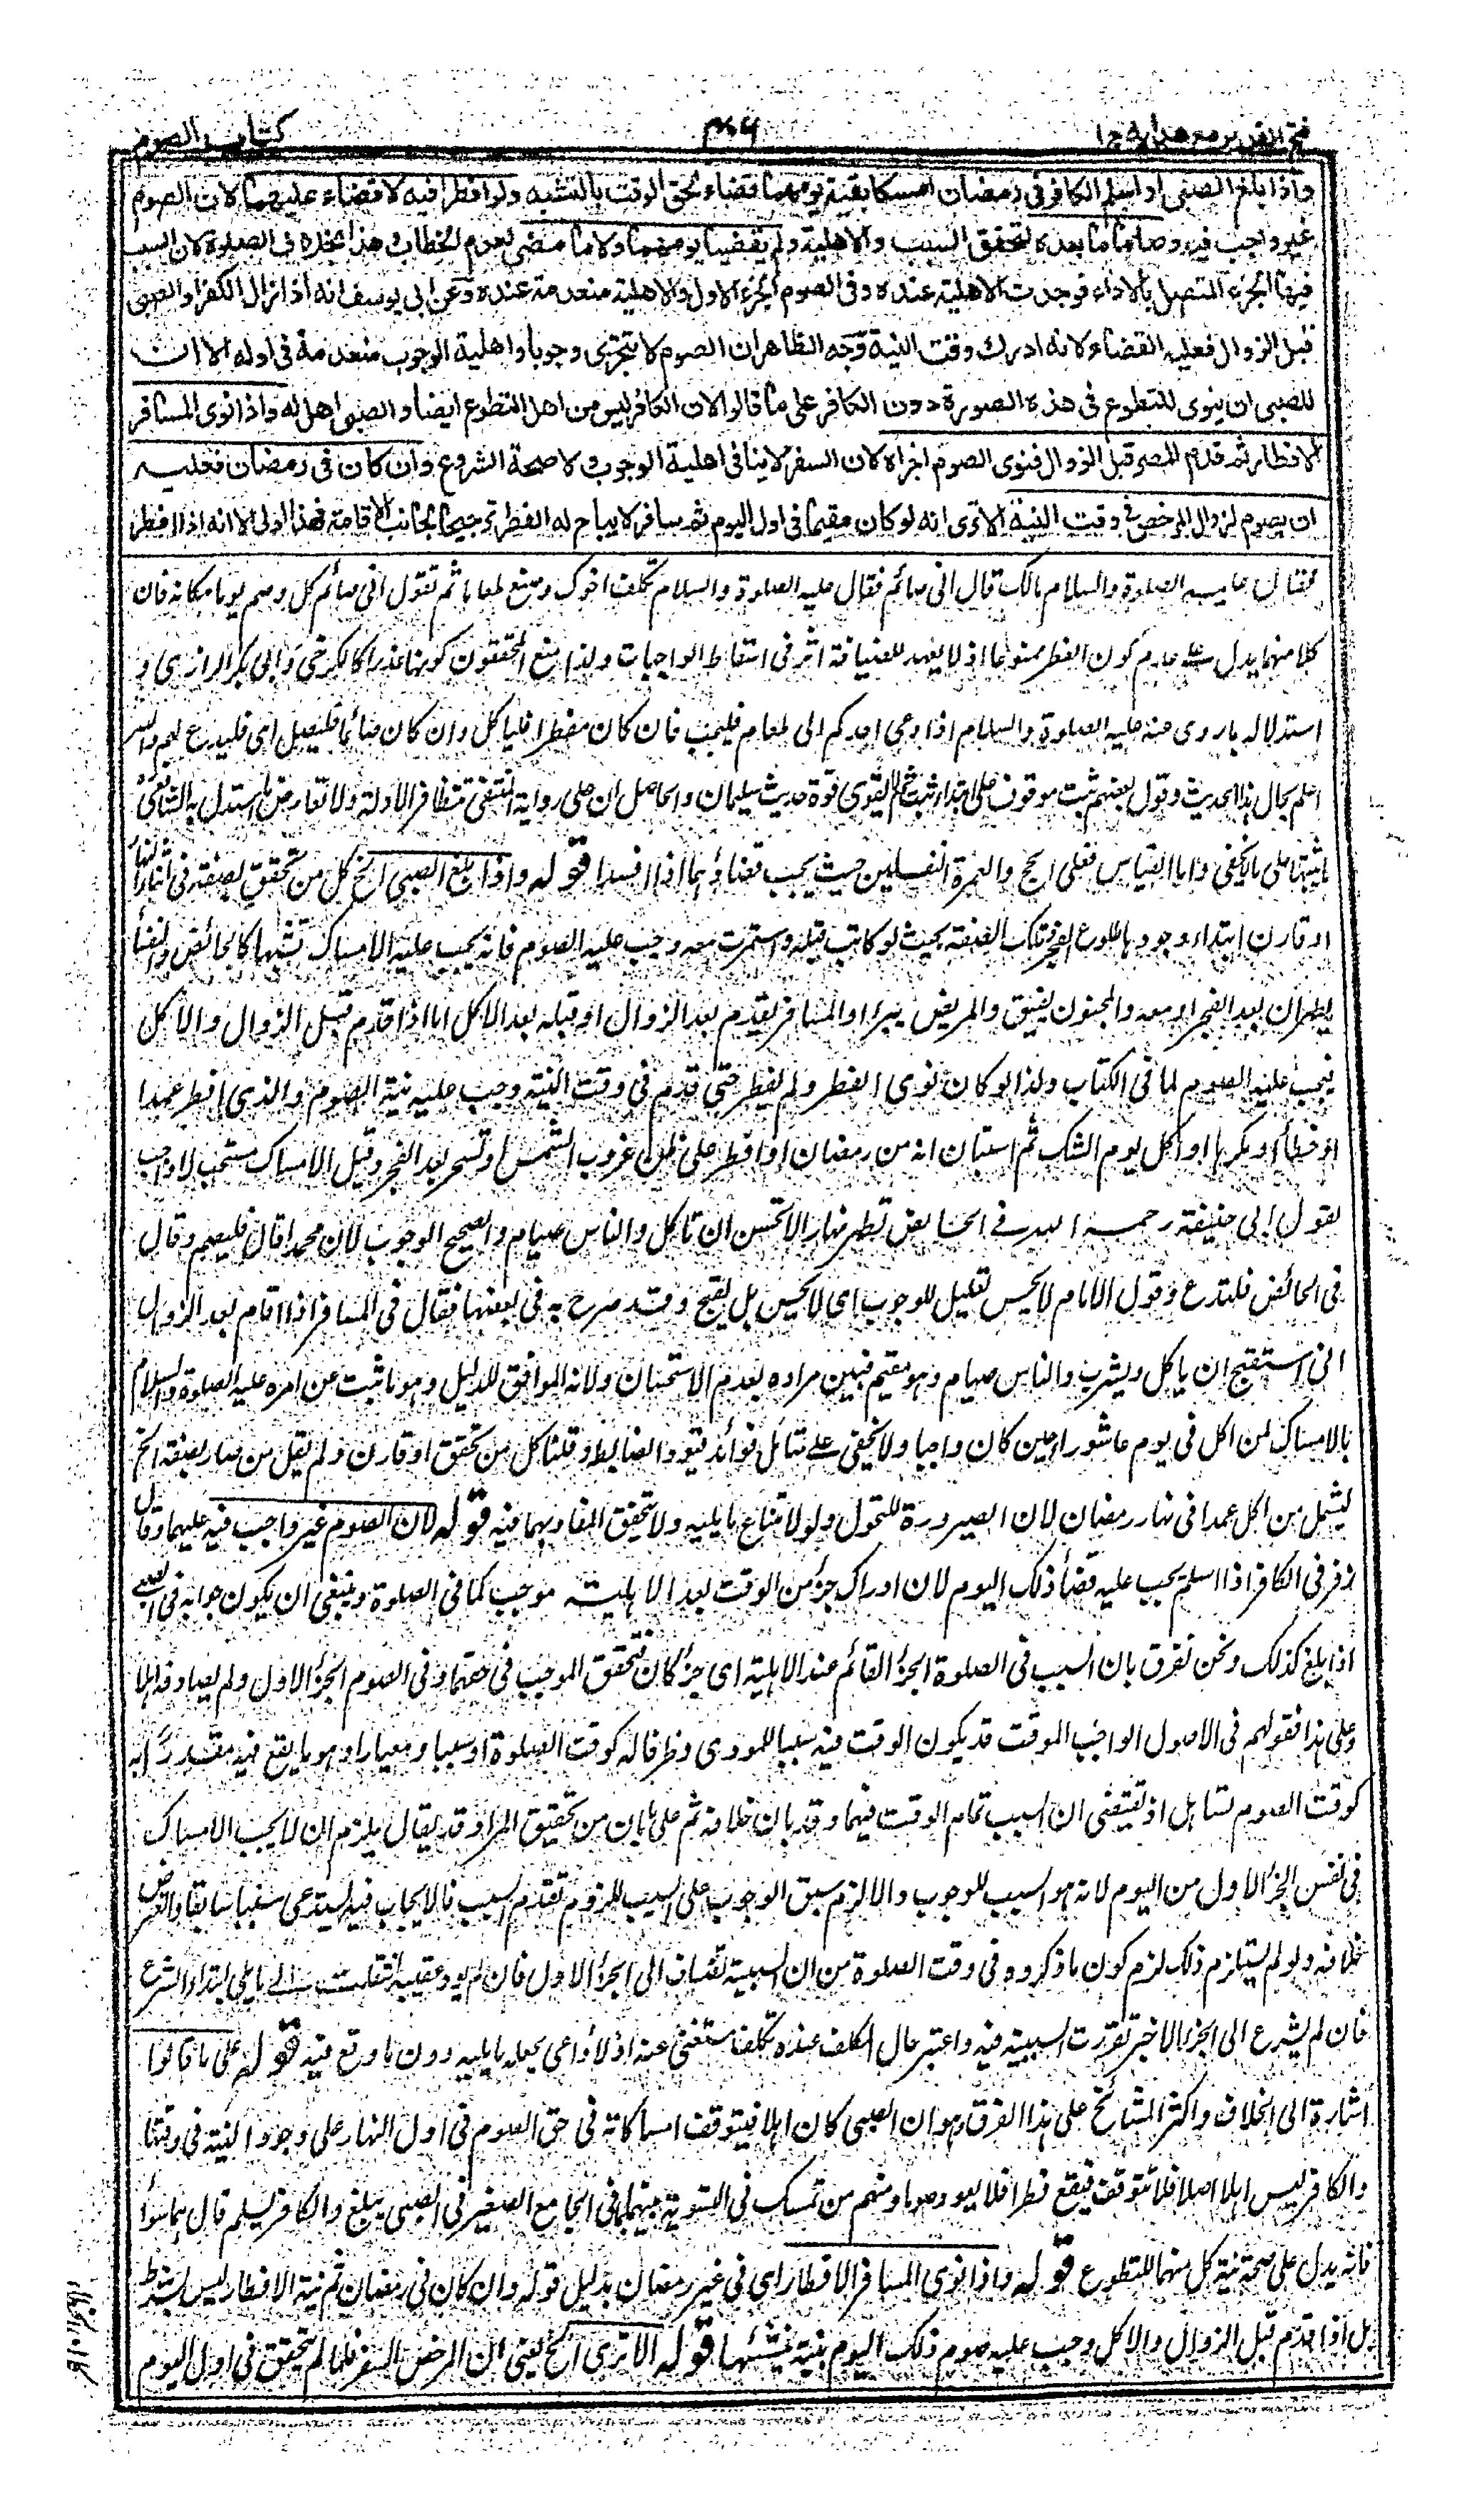 فتح القدير مع هدايه ج ١
كتاب الصوم
واذا بلغ الصبى او اسلم الكافر فى رمضان امسكا بقية يومهما قضاء لحق الوقت بالتشبه ولو افطرا فيه لا قضاء عليهما لان الصوم
غير واجب فيه وصاما ما بعده لتحقق السبب والاهلية ولم يقضيا يومهما ولا ما مضى لعدم الخطاب وهذا بخلاف الصلوة لان السبب
فيها الجزء المتصل بالاداء فوجدت الاهلية عنده وفى الصوم الجزء الاول والاهلية منعدمة عنده وعن ابى يوسف انه اذا زال الكفر او الصبى
قبل الزوال فعليه القضاء لانه ادرك وقت النية وجه الظاهر ان الصوم لا يتجزى وجوبا واهلية الوجوب منعدمة فى اوله الا ان
للصبى ان ينوى للتطوع فى هذه الصورة دون الكافر على ما قالوا لان الكافر ليس من اهل التطوع ايضا والصبى اهل له واذا نوى المسافر
الافطار ثم قدم المصر قبل الزوال فنوى الصوم اجزاه لان السفر لا ينافى اهلية الوجوب ولا صحة الشروع وان كان فى رمضان فعليه
ان يصوم لزوال المرخص فى وقت النية الا ترى انه لو كان مقيما فى اول اليوم ثم سافر لا يباح له الفطر ترجيحا لجانب الاقامة فهذا اولى الا انه اذا افطر
فقال عليه الصلوة والسلام مالك قال انى صائم فقال عليه الصلوة والسلام تكلف اخوك وصنع طعاما ثم تقول انى صائم كل وصم يوما مكانه فان
كلا منهما يدل على عدم كون الفطر ممنوعا اذ لا يعهد للضيافة اثر فى اسقاط الواجبات ولذا منع المحققون كونها عذرا كالكرخى وابى بكر الرازى و
استدلاله بما روى عنه عليه الصلوة والسلام اذا دعى احدكم الى طعام فليجب فان كان مفطرا فليأكل وان كان صائما فليصل اى فليدع لهم والله
اعلم بحال هذا الحديث وقول بعضهم ثبت موقوف على ابداء ثبت ثم القوى قوة حديث سليمان والحاصل ان على رواية المنتقى تتظافر الادلة ولا تعارض ما استدل به الشافعى
ما يثبتها على ما لا يخفى واما القياس فعلى الحج والعمرة النفلين حيث يجب قضاؤهما اذا افسدا قوله واذا بلغ الصبى الخ كل من تحقق بصفة فى اثناء النهار
او قارن ابتداء وجودها طلوع الفجر وتلك الصفة بحيث لو كانت قبله واستمرت معه وجب عليه الصوم فانه يجب عليه الامساك تشبها كالحائض والنفساء
يطهران بعد الفجر او معه والمجنون يفيق والمريض يبرأ والمسافر يقدم بعد الزوال او قبله بعد الاكل اما اذا قدم قبل الزوال والاكل
فيجب عليه الصوم لما فى الكتاب ولذا لو كان نوى الفطر ولم يفطر حتى قدم فى وقت النية وجب عليه نية الصوم والذى افطر عمدا
او خطأ او مكرها او اكل يوم الشك ثم استبان انه من رمضان او افطر على ظن غروب الشمس او تسحر بعد الفجر وقيل الامساك مستحب لا واجب
لقول ابى حنيفة رحمه الله فى الحائض تطهر نهارا لا تحسن ان تأكل والناس صيام والصحيح الوجوب لان محمدا قال فليصم وقال
فى الحائض فلتدع وقول الامام لا يحسن تعليل للوجوب اى لا يحسن بل يقبح وقد صرح به فى بعضها فقال فى المسافر اذا اقام بعد الزوال
انى استقبح ان ياكل ويشرب والناس صيام وهو مقيم فبين مراده بعدم الاستحسان ولانه الموافق للدليل وهو ما ثبت من امره عليه الصلوة والسلام
بالامساك لمن اكل فى يوم عاشوراء حين كان واجبا ولا يخفى على متأمل فوائد قيود الضابط وقلنا كل من تحقق او قارن ولم يقل من صار بصفة الخ
ليشمل من اكل عمدا فى نهار رمضان لان الصيرورة للتحول ولو لامتناع ما يليه ولا يتحقق المفاد بهما فيه قوله لان الصوم غير واجب فيه عليهما وقال
زفر فى الكافر اذا اسلم يجب عليه قضاء ذلك اليوم لان ادراك جزء من الوقت بعد الاهلية موجب كما فى الصلوة وينبغى ان يكون جوابه فى الصبى
اذا بلغ كذلك ونحن نفرق بان السبب فى الصلوة الجزء القائم عند الاهلية اى جزء كان فتحقق الموجب فى حقهما وفى الصوم الجزء الاول ولم يصادفه اهلا
وعلى هذا فقولهم فى الاصول الواجب الموقت قد يكون الوقت فيه سببا للمودى وظرفا له كوقت الصلوة او سببا ومعيارا وهو ما يقع فيه مقدرا به
كوقت الصوم تساهل اذ يقتضى ان السبب تمام الوقت فيهما وقد بان خلافه ثم على ما بان من تحقيق المراد قد يقال يلزم ان لا يجب الامساك
فى نفس الجزء الاول من اليوم لانه هو السبب للوجوب والا لزم سبق الوجوب على السبب للزوم تقدم السبب فالايجاب فيه يستدعى سببا سابقا والفرض
خلافه ولو لم يستلزم ذلك لزم كون ما ذكروه فى وقت الصلوة من ان السببية تضاف الى الجزء الاول فان لم يود عقيبه انتقلت الى ما يلى ابتداء الشرع
فان لم يشرع الى الجزء الاخير تقررت السببية فيه واعتبر حال المكلف عنده تكلف مستغنى عنه اذ لا داعى بجعله ما يليه دون ما وقع فيه قوله على ما قالوا
اشارة الى الخلاف واكثر المشائخ على هذا الفرق وهو ان الصبى كان اهلا فيتوقف امساكاته فى حق الصوم فى اول النهار على وجود النية فى وقتها
والكافر ليس اهلا اصلا فلا تتوقف فيقع فطرا فلا يعود صوما ومنهم من تمسك فى التسوية بينهما بما فى الجامع الصغير فى الصبى يبلغ والكافر يسلم قال هما سواء
فانه يدل على صحة نية كل منهما للتطوع قوله واذا نوى المسافر الافطار اى فى غير رمضان بدليل قوله وان كان فى رمضان ثم نية الافطار ليس بشرط
بل اذا قدم قبل الزوال والاكل وجب عليه صوم ذلك اليوم بنية ينشئها قوله الا ترى الخ يعنى ان المرخص السفر فلما لم يتحقق فى اول اليوم